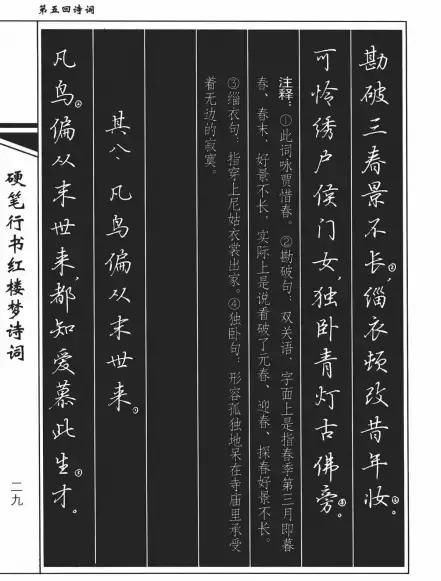 第五回诗词
勘破三春景不长②,缁衣顿改昔年妆③。
可怜绣户侯门女,独卧青灯古佛旁④。
注释:①此词咏贾惜春。②勘破句:双关语,字面上是指春季第三月即暮
春、春末,好景不长,实际上是说看破了元春、迎春、探春好景不长。
③缁衣句:指穿上尼姑衣裳出家。④独卧句:形容孤独地呆在寺庙里承受
着无边的寂寞。
其八、凡鸟偏从末世来①
凡鸟②偏从末世来,都知爱慕此生才③。
硬笔行书红楼梦诗词
二九